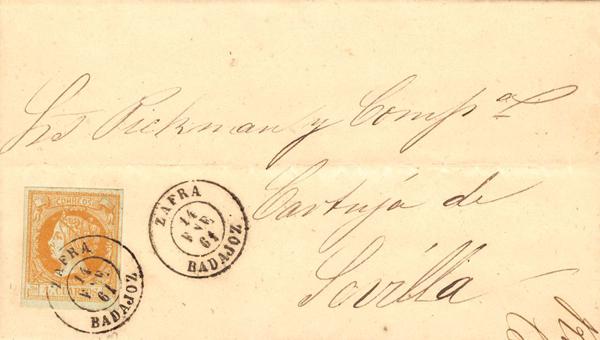 Srs Pickman y Comp.ª
Cartuja de
Sevilla
CORREOS
ZAFRA
14
FVE.
61
BADAJOZ
ZAFRA
14
61
BADAJOZ